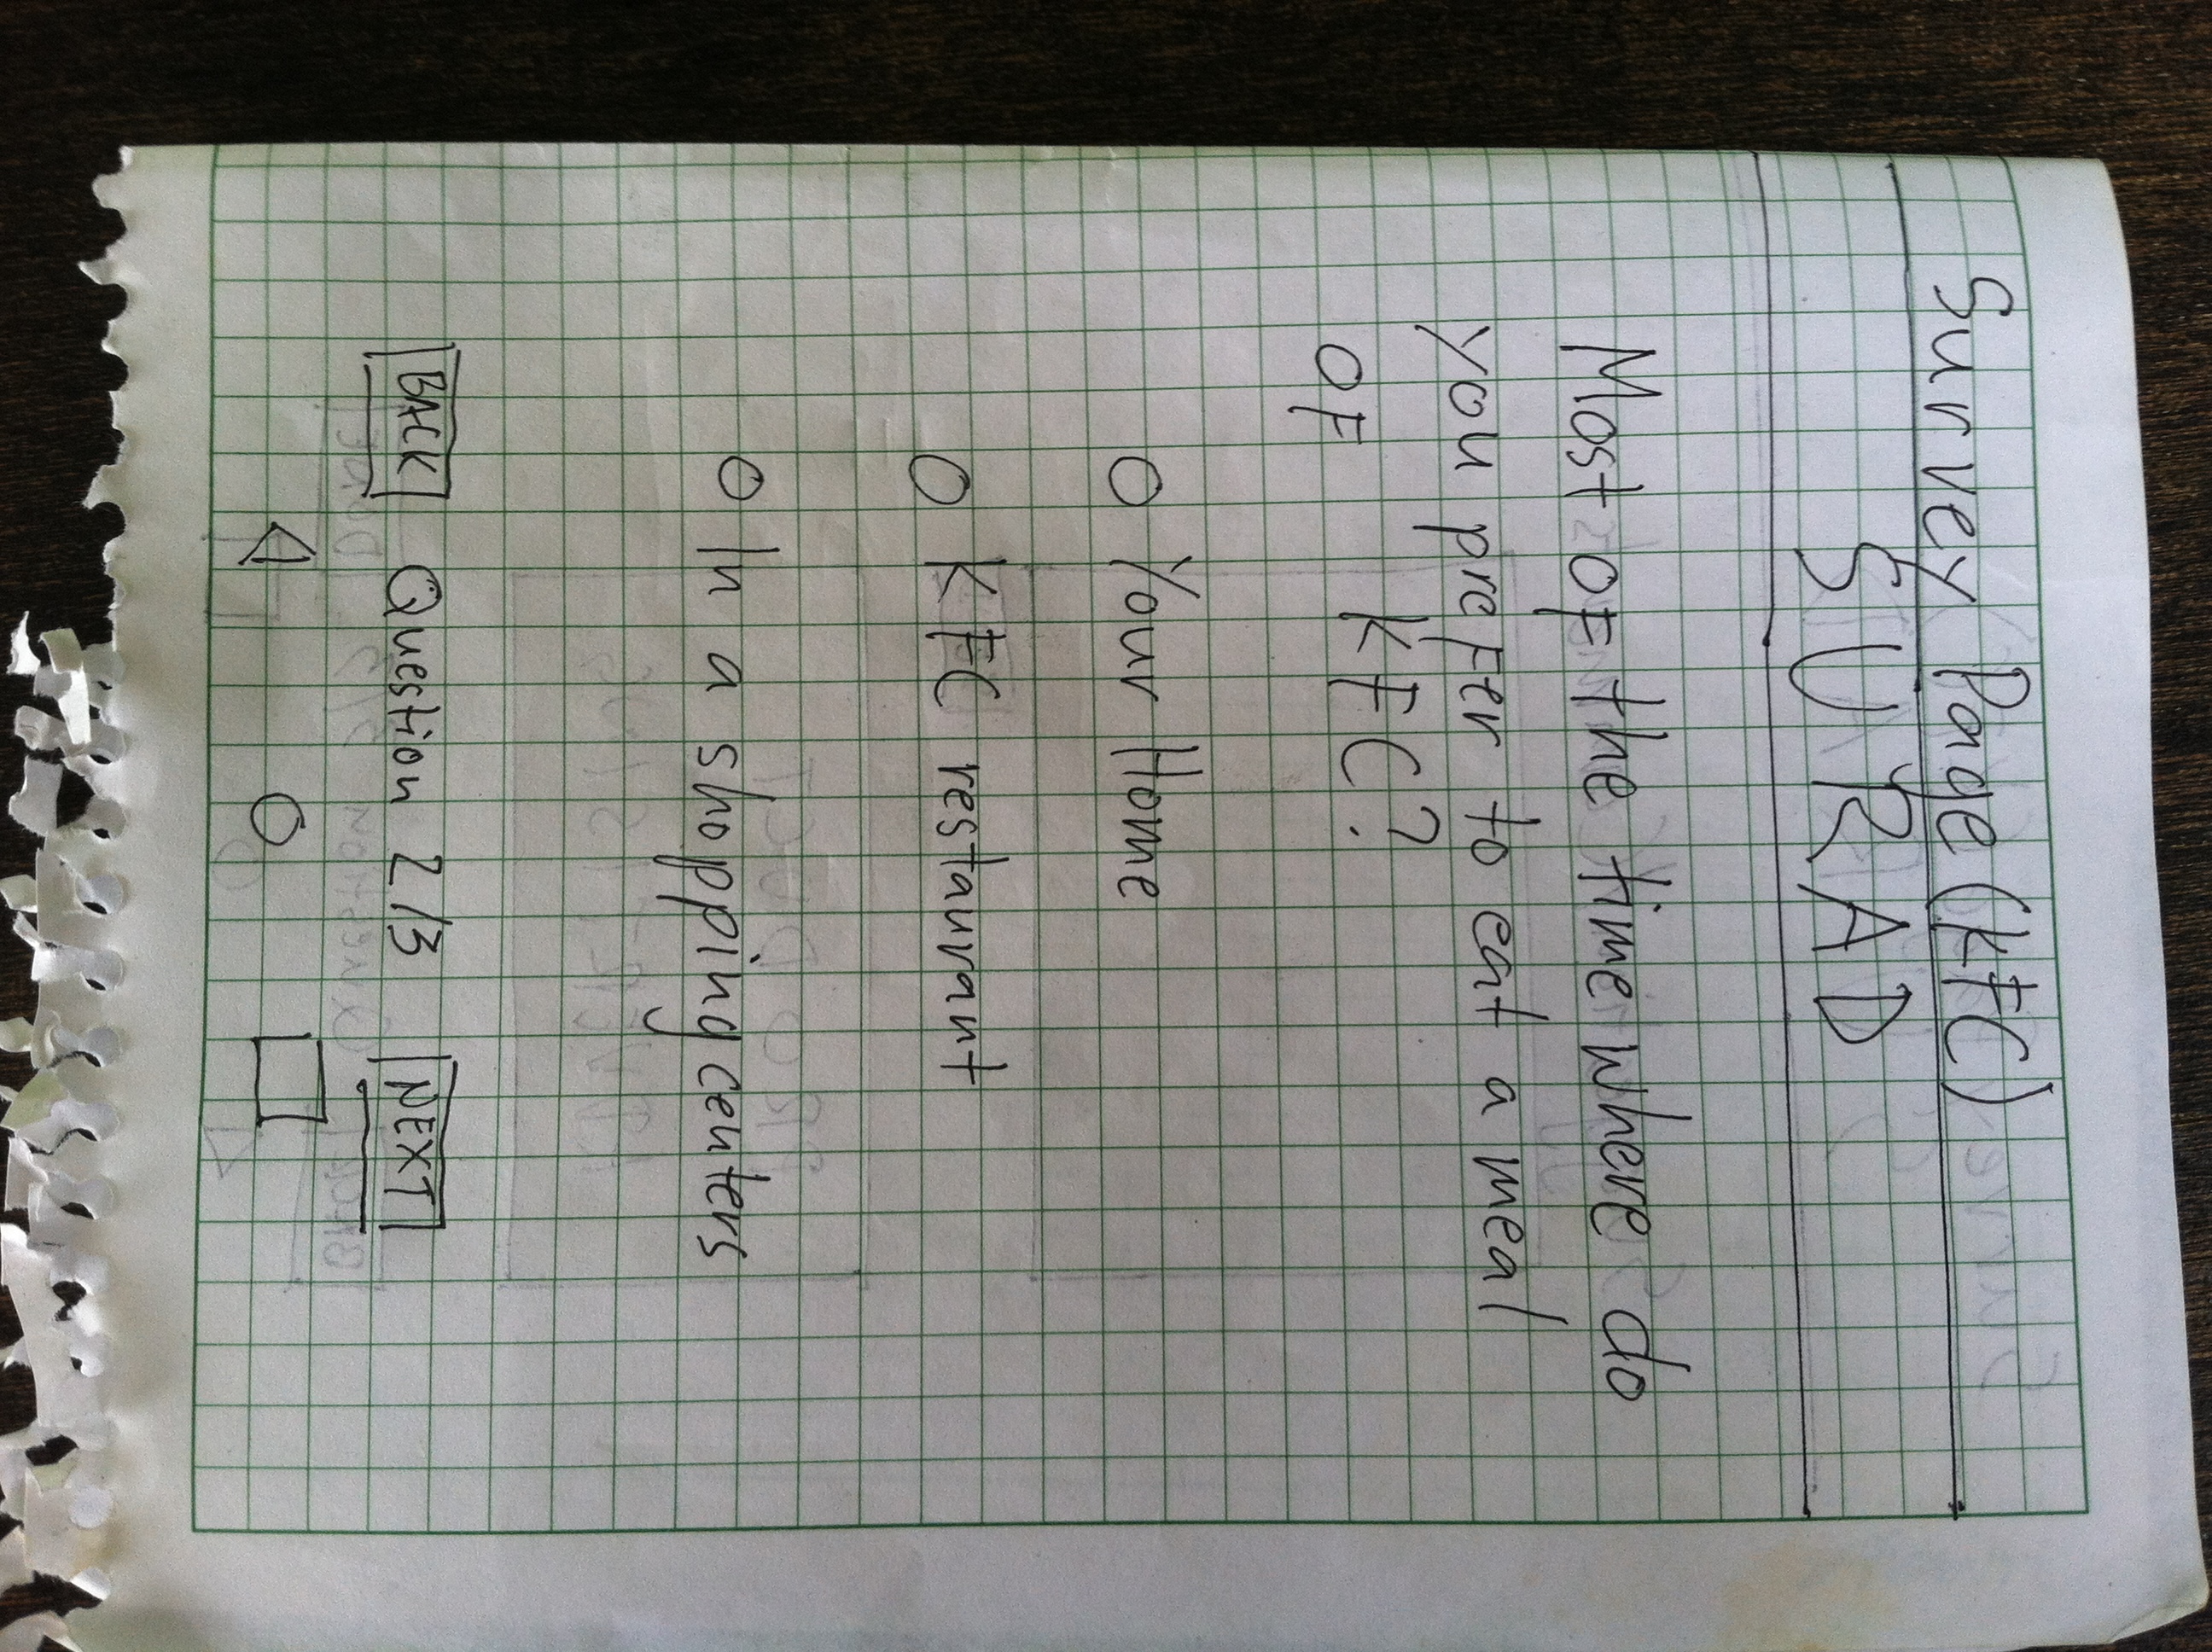 Survey Page (KFC)
SURAD
Most OF the time where do
you preFer to eat a meal
OF KFC?
Your Home
KFC restaurant
In a shopping centers
BACK Question 2/3 NEXT